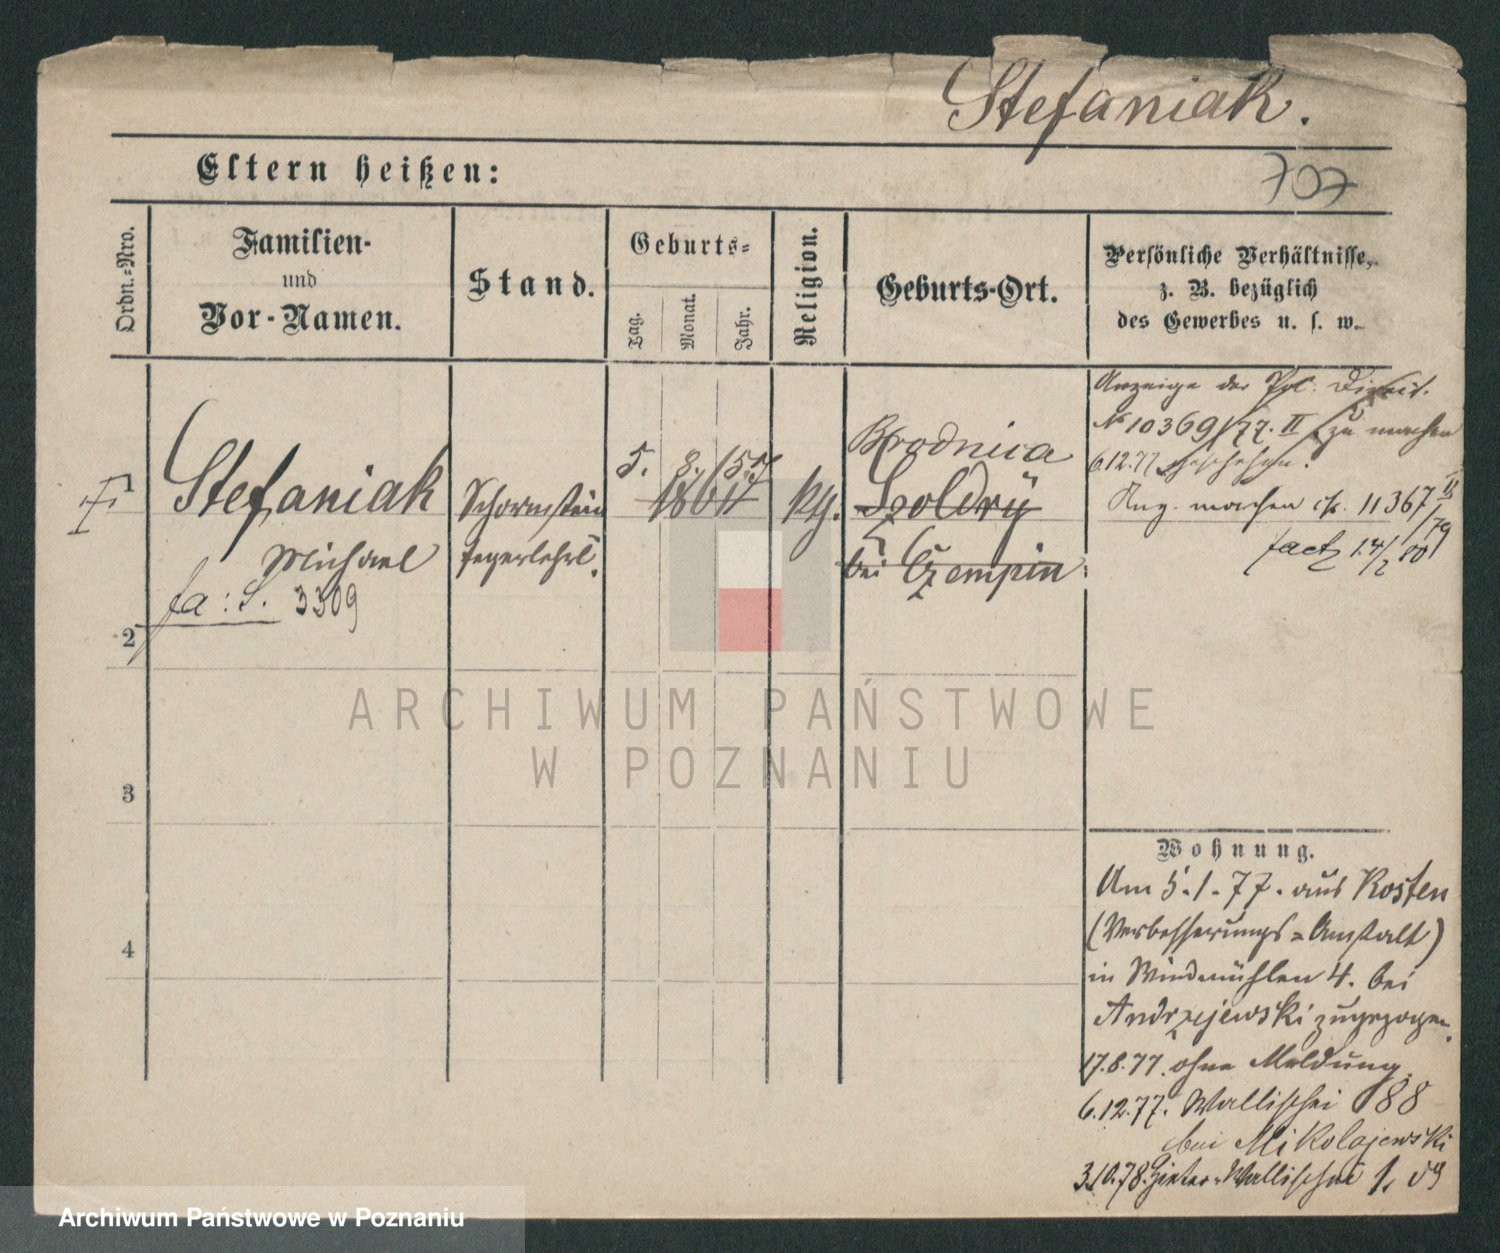 Stefaniak.
707
Eltern heißen:
Ordn.-Nro.
Familien-
und
Vor-Namen.
Stand.
Geburts-
Tag.
Monat.
Jahr.
Religion.
Geburts-Ort.
Persönliche Verhältnisse,
z. B. bezüglich
des Gewerbes u. s. w.
Stefaniak
Michael
fa: S. 3309
Schornstein
fegerlehrl.
5. 8.
1861
kth.
Brodnica
Szoldry
bei Czempin
Anzeige der Pol. Direct.
№ 10369/77. II zu machen
6.12.77 geschehen.
Anz. machen 11367 II/79
2
3
4
Wohnung.
Am 5.1.77. aus Kosten
(Verbesserungs-Anstalt)
in Windmühlen 4. bei
Andrzejewski zugezogen.
17.8.77. ohne Meldung.
6.12.77. Wallischei 88
bei Mikolajewski
3.10.78. Hinter-Wallischei 1.
ARCHIWUM PAŃSTWOWE
W POZNANIU
Archiwum Państwowe w Poznaniu